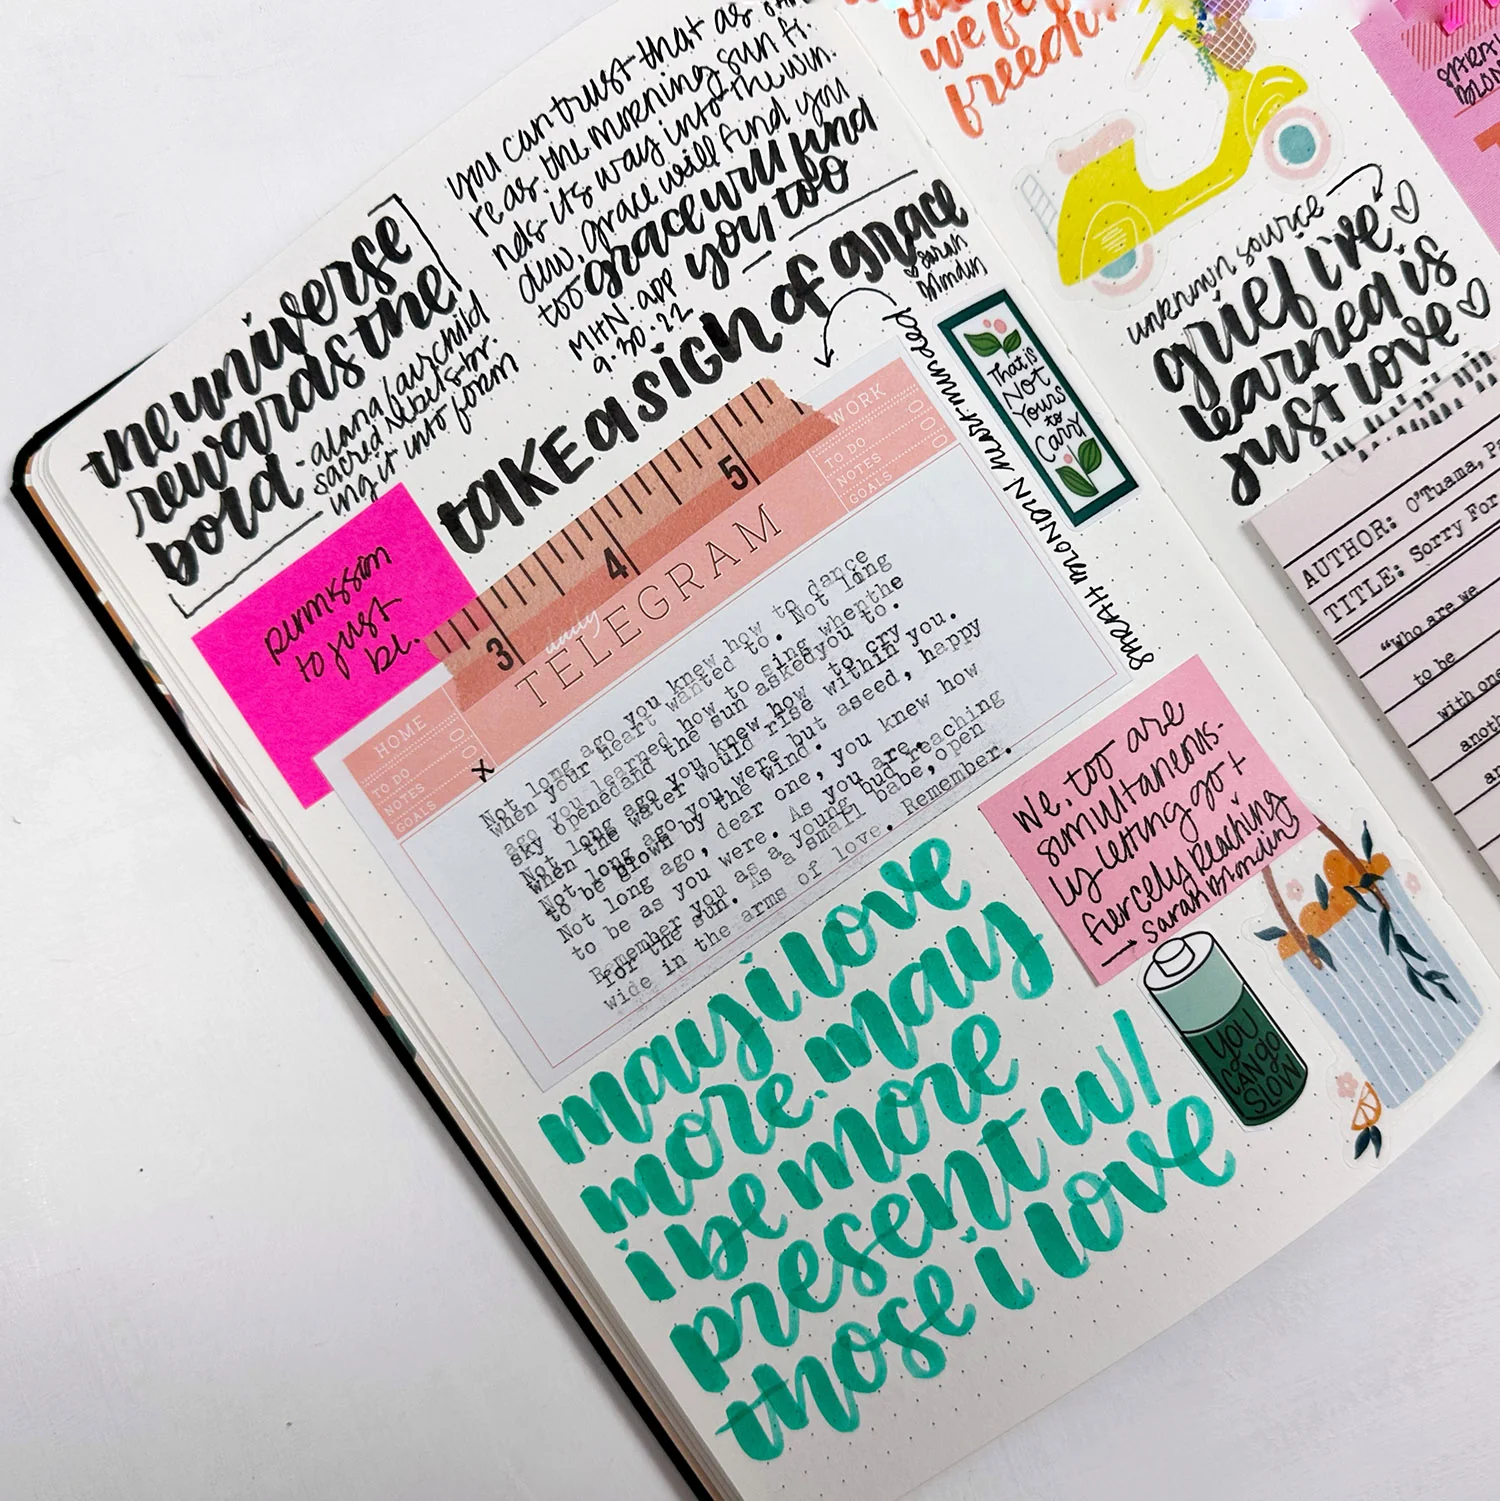 the universe
rewards the
bold - alana fairchild
sacred rebels - br.
ing it into form
you can trust that as
re as the morning sun fi.
nds its way into the win.
dow, grace will find you
too grace will find
you too
MHN.app
9.30.22
take a sign of grace
sarah
blondin
permission
to just
be.
3 4 5
daily
TELEGRAM
HOME
TO DO
NOTES
GOALS
WORK
TO DO
NOTES
GOALS
x
Not long ago you knew how to dance
when your heart wanted to. Not long
ago you learned how to sing when the
sky openedand the sun askedyou to.
Not long ago you knew how to cry
when the water would rise within you.
Not long ago you were but aseed, happy
to be blown by the wind.
Not long ago, dear one, you knew how
to be as you were. As you are.
Remember you as a young bud reaching
for the sun. As a small babe,open
wide in the arms of love. Remember.
SARAH BLONDIN heart minded
That is
Not
Yours
to
Carry
may i love
more. may
i be more
present w/
those i love
we, too are
simultaneous-
ly letting go +
fiercely reaching
→ sarah blondin
YOU
CAN GO
SLOW
we
freedom
unknown source
grief i've
learned is
just love
AUTHOR: O'Tuama,
TITLE: Sorry For
"Who are we
to be
with one
anoth